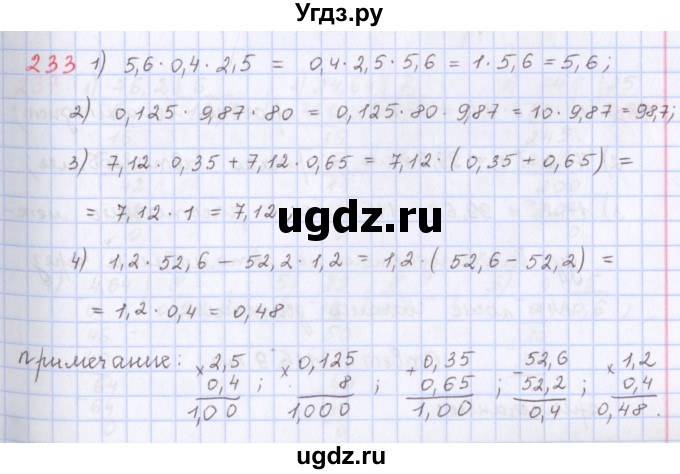 Угдз.ру
233 1) 5,6 · 0,4 · 2,5 = 0,4 · 2,5 · 5,6 = 1 · 5,6 = 5,6;
2) 0,125 · 9,87 · 80 = 0,125 · 80 · 9,87 = 10 · 9,87 = 98,7;
3) 7,12 · 0,35 + 7,12 · 0,65 = 7,12 · (0,35 + 0,65) =
= 7,12 · 1 = 7,12;
ugdz.ru
4) 1,2 · 52,6 − 52,2 · 1,2 = 1,2 · (52,6 − 52,2) =
= 1,2 · 0,4 = 0,48
примечание: × 2,5 × 0,125 + 0,35 − 52,6 × 1,2
0,4 ; 8 ; 0,65 ; 52,2 ; 0,4
1,00 1,000 1,00 0,4 0,48.
ugdz.ru